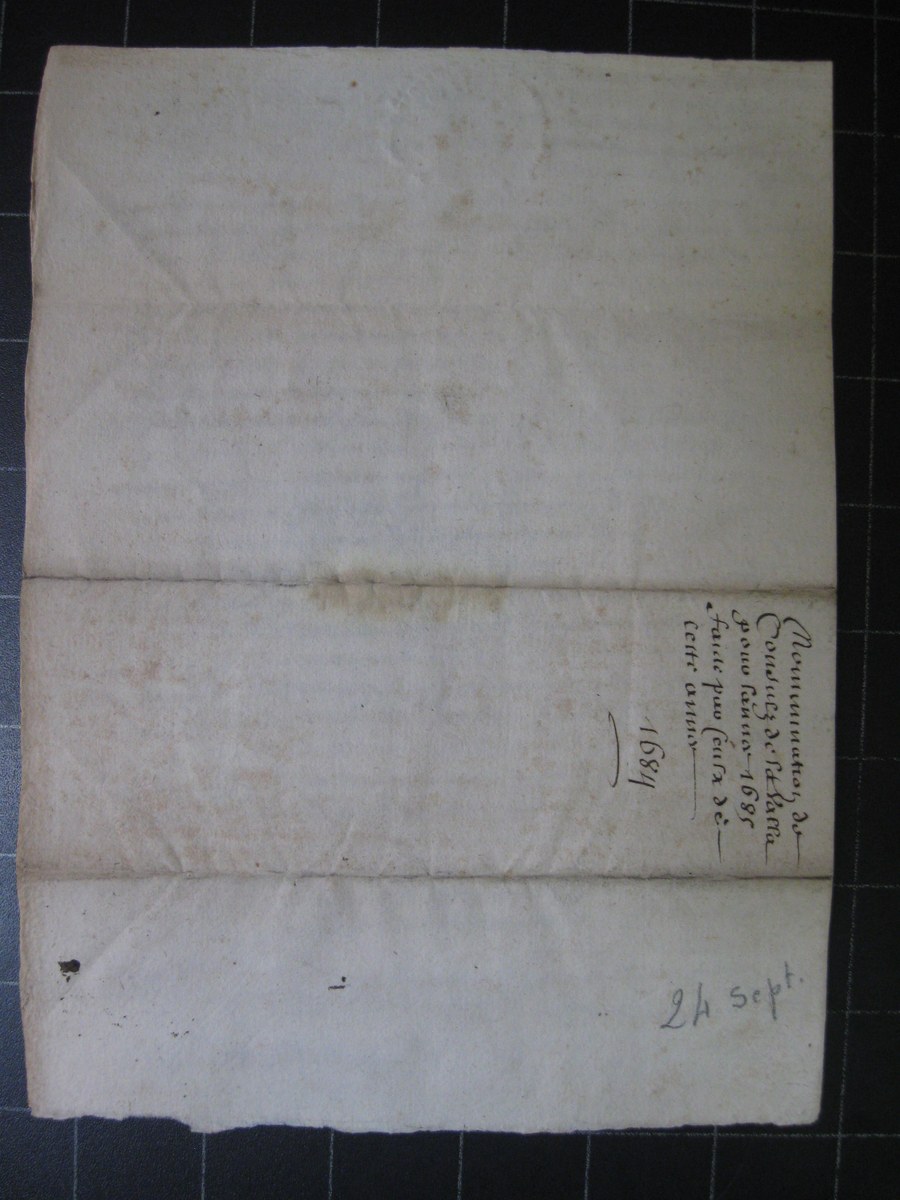 Nomination de
Consulz de la Valla
pour lannee 1685
faite par ceulx de
cette annee
1684
24 Sept.